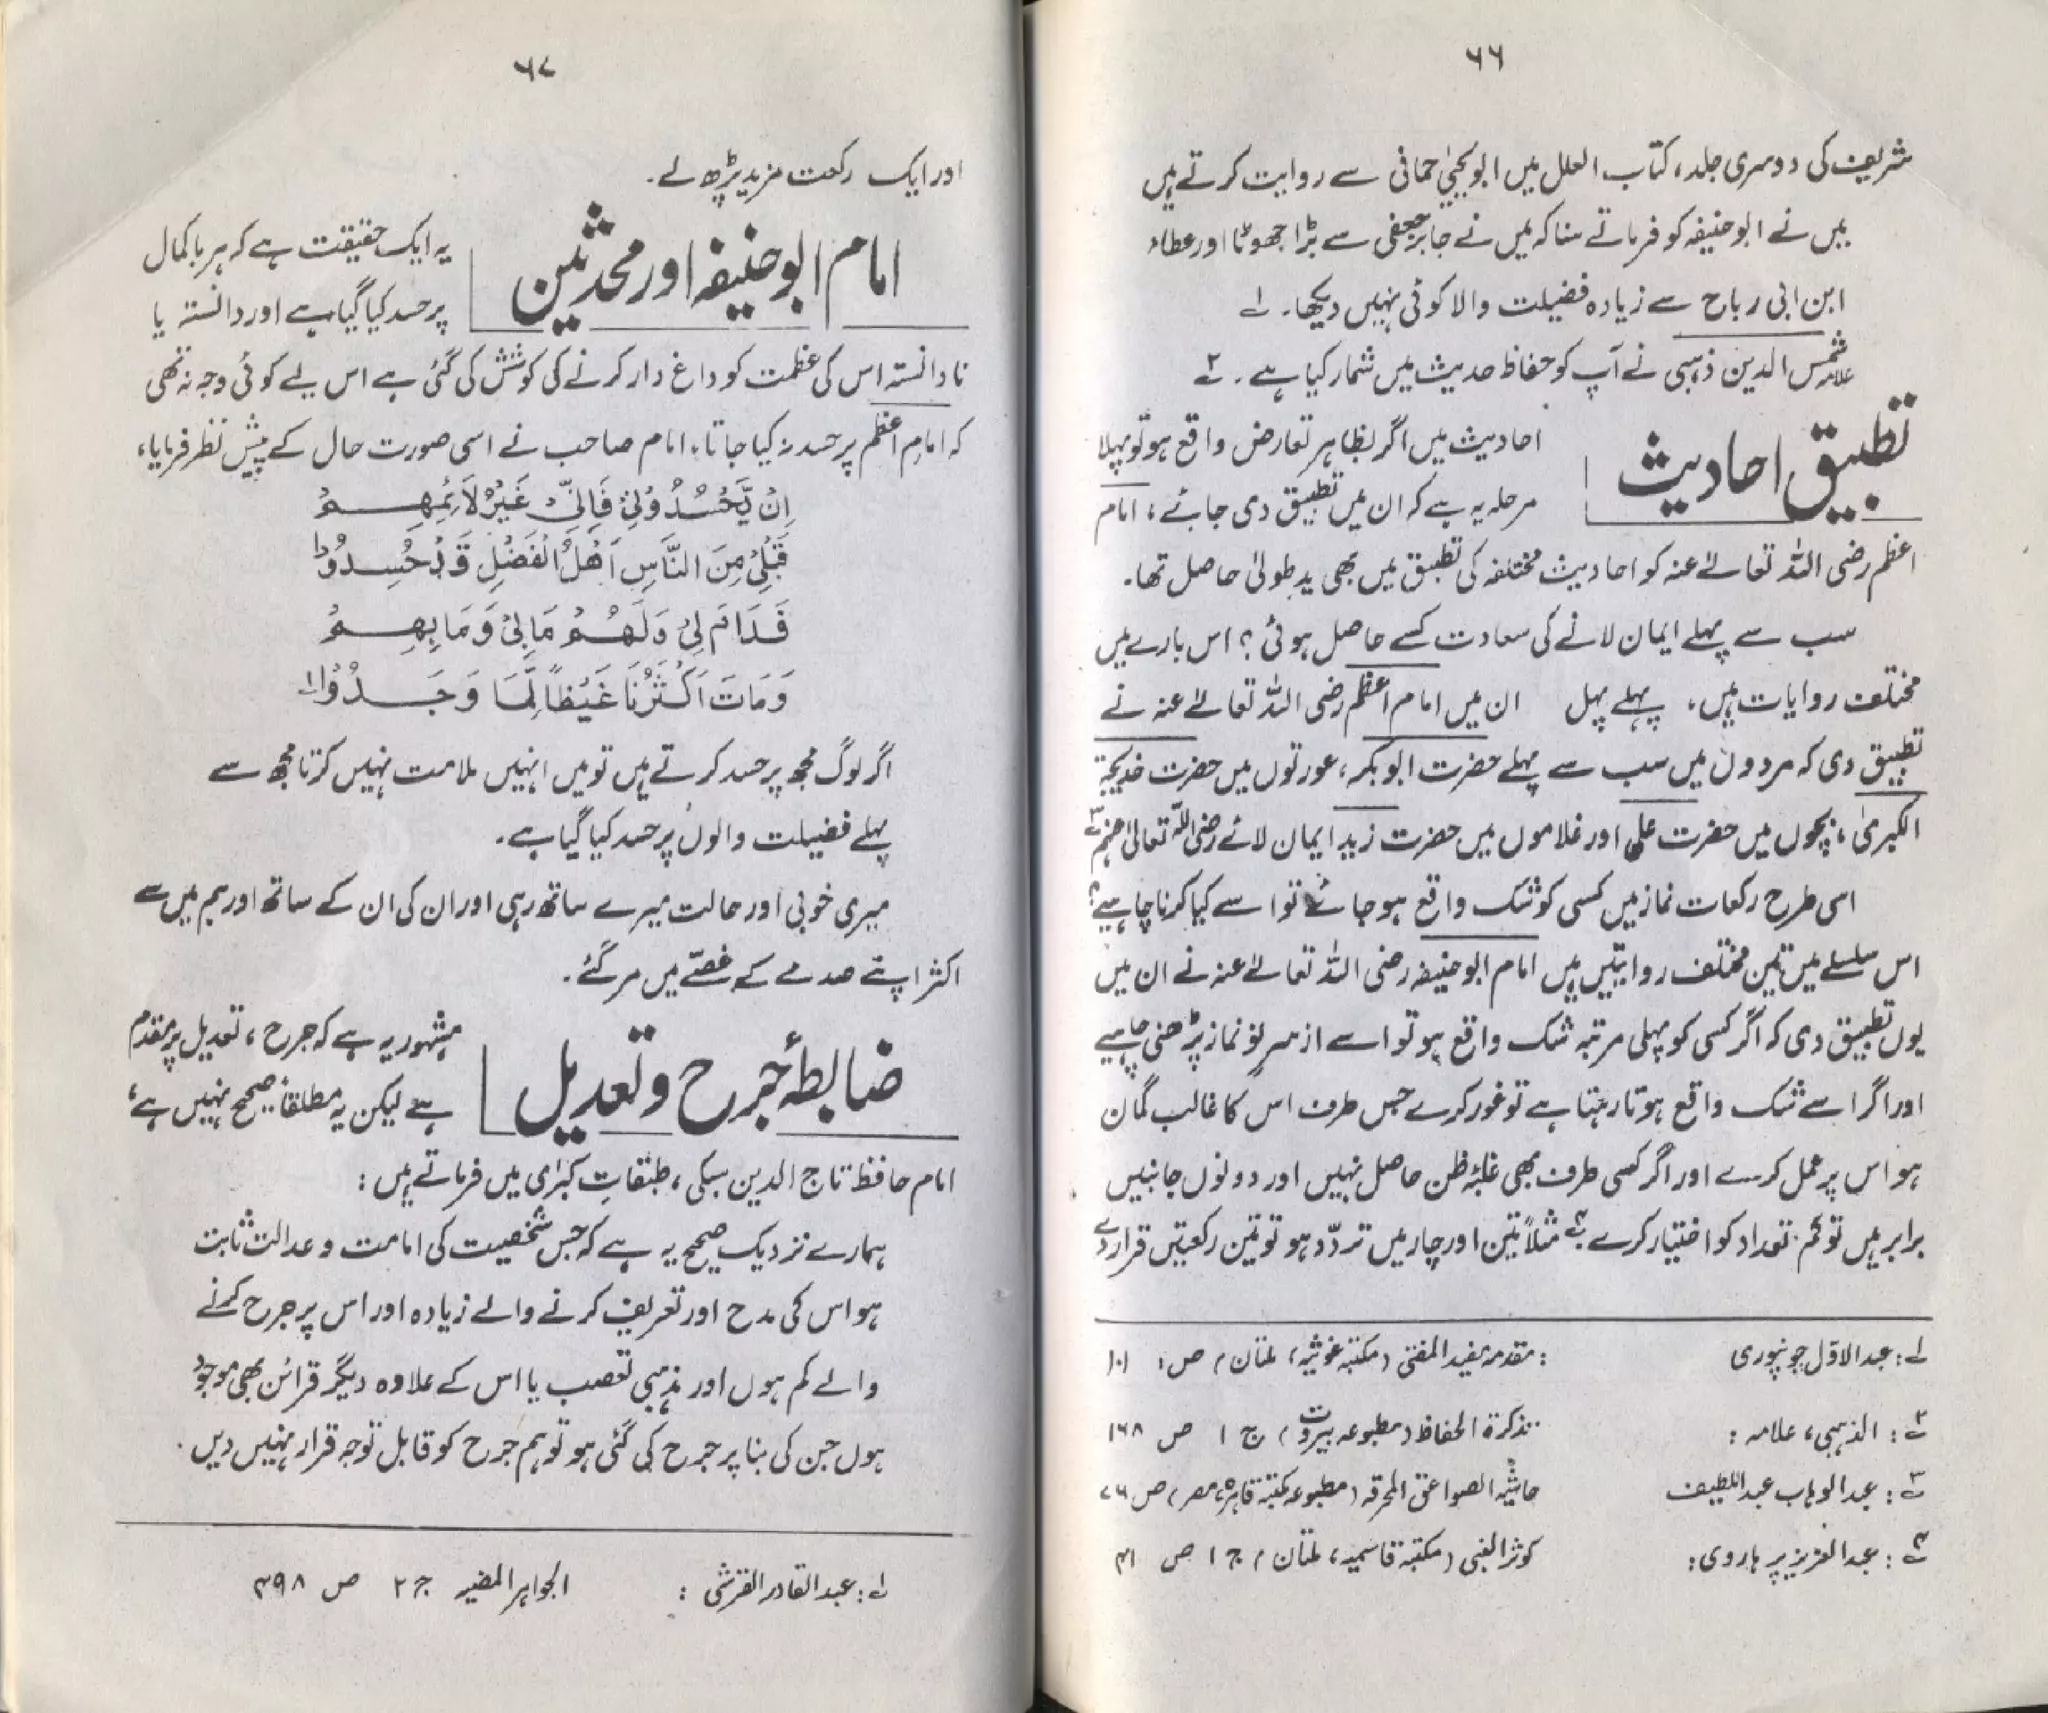 ۶۶
شریف کی دوسری جلد، کتاب العلل میں ابو یحییٰ حمانی سے روایت کرتے ہیں
میں نے ابو حنیفہ کو فرماتے سنا کہ میں نے جابر جعفی سے بڑا جھوٹا اور عطاء
ابن ابی رباح سے زیادہ فضیلت والا کوئی نہیں دیکھا۔ ؎۱
علامہ شمس الدین ذہبی نے آپ کو حفاظ حدیث میں شمار کیا ہے۔ ؎۲
تطبیق احادیث
احادیث میں اگر بظاہر تعارض واقع ہو تو پہلا
مرحلہ یہ ہے کہ ان میں تطبیق دی جائے، امام
اعظم رضی اللہ تعالےٰ عنہ کو احادیث مختلفہ کی تطبیق میں بھی ید طولیٰ حاصل تھا۔
سب سے پہلے ایمان لانے کی سعادت کسے حاصل ہوئی؟ اس بارے میں
مختلف روایات ہیں، پہلے پہل ان میں امام اعظم رضی اللہ تعالےٰ عنہ نے
تطبیق دی کہ مردوں میں سب سے پہلے حضرت ابوبکر، عورتوں میں حضرت خدیجۃ
الکبریٰ، بچوں میں حضرت علی اور غلاموں میں حضرت زید ایمان لائے رضی اللہ تعالیٰ عنہم ؎۳
اسی طرح رکعات نماز میں کسی کو شک واقع ہو جائے تو اسے کیا کرنا چاہیے؟
اس سلسلے میں تین مختلف روایتیں ہیں امام ابو حنیفہ رضی اللہ تعالےٰ عنہ نے ان میں
یوں تطبیق دی کہ اگر کسی کو پہلی مرتبہ شک واقع ہو تو اسے از سر نو نماز پڑھنی چاہیے
اور اگر اسے شک واقع ہوتا رہتا ہے تو غور کرے جس طرف اس کا غالب گمان
ہو اس پر عمل کرے اور اگر کسی طرف بھی غلبۂ ظن حاصل نہیں اور دونوں جانبیں
برابر ہیں تو کم تعداد کو اختیار کرے ؎۴ مثلاً تین اور چار میں تردّد ہو تو تین رکعتیں قرار دے
؎۱: عبد الاوّل جونپوری : مقدمہ مفید المفتی (مکتبہ غوثیہ، ملتان) ص: ۱۰۱
؎۲: الذہبی، علامہ: تذکرۃ الحفاظ (مطبوعہ بیروت) ج ۱ ص ۱۶۸
؎۳: عبد الوہاب عبد اللطیف حاشیہ الصواعق المحرقہ (مطبوعہ مکتبۃ قاہرہ، مصر) ص ۷۶
؎۴: عبد العزیز پرہاروی: کوثر النبی (مکتبۃ قاسمیہ، ملتان) ج ۱ ص ۴۱
۶۷
اور ایک رکعت مزید پڑھ لے۔
امام ابو حنیفہ اور محدثین
یہ ایک حقیقت ہے کہ ہر باکمال
پر حسد کیا گیا ہے اور دانستہ یا
نادانستہ اس کی عظمت کو داغ دار کرنے کی کوشش کی گئی ہے اس لیے کوئی وجہ نہ تھی
کہ امام اعظم پر حسد نہ کیا جاتا، امام صاحب نے اسی صورت حال کے پیش نظر فرمایا،
اِنْ یَّحْسُدُوْنِیْ فَاِنِّیْ غَیْرُ لَائِمِھِمْ
قَبْلِیْ مِنَ النَّاسِ اَھْلُ الْفَضْلِ قَدْ حُسِدُوْا
فَدَامَ لِیْ وَلَھُمْ مَا بِیْ وَمَا بِھِمْ
وَمَاتَ اَکْثَرُنَا غَیْظًا لِّمَا وَجَدُوْا ؎۱
اگر لوگ مجھ پر حسد کرتے ہیں تو میں انہیں ملامت نہیں کرتا مجھ سے
پہلے فضیلت والوں پر حسد کیا گیا ہے۔
میری خوبی اور حالت میرے ساتھ رہی اور ان کی ان کے ساتھ اور ہم میں سے
اکثر اپنے صدمے کے غصّے میں مر گئے۔
ضابطۂ جرح و تعدیل
مشہور یہ ہے کہ جرح، تعدیل پر مقدم
ہے لیکن یہ مطلقاً صحیح نہیں ہے،
امام حافظ تاج الدین سبکی، طبقاتِ کبرٰی میں فرماتے ہیں:
ہمارے نزدیک صحیح یہ ہے کہ جس شخصیت کی امامت و عدالت ثابت
ہو اس کی مدح اور تعریف کرنے والے زیادہ اور اس پر جرح کرنے
والے کم ہوں اور مذہبی تعصب یا اس کے علاوہ دیگر قرائن بھی موجود
ہوں جن کی بنا پر جرح کی گئی ہو تو ہم جرح کو قابل توجہ قرار نہیں دیں۔
؎۱: عبد القادر القرشی: الجواہر المضیہ ج ۲ ص ۴۹۸